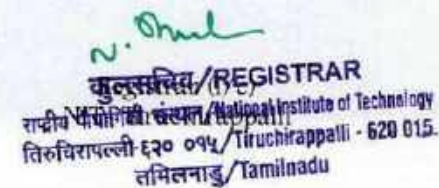 कुलसचिव/REGISTRAR
राष्ट्रीय प्रौद्योगिकी संस्थान/National Institute of Technology
तिरुचिरापल्ली-६२० ०१५/Tiruchirappalli - 620 015.
तमिलनाडु/Tamilnadu